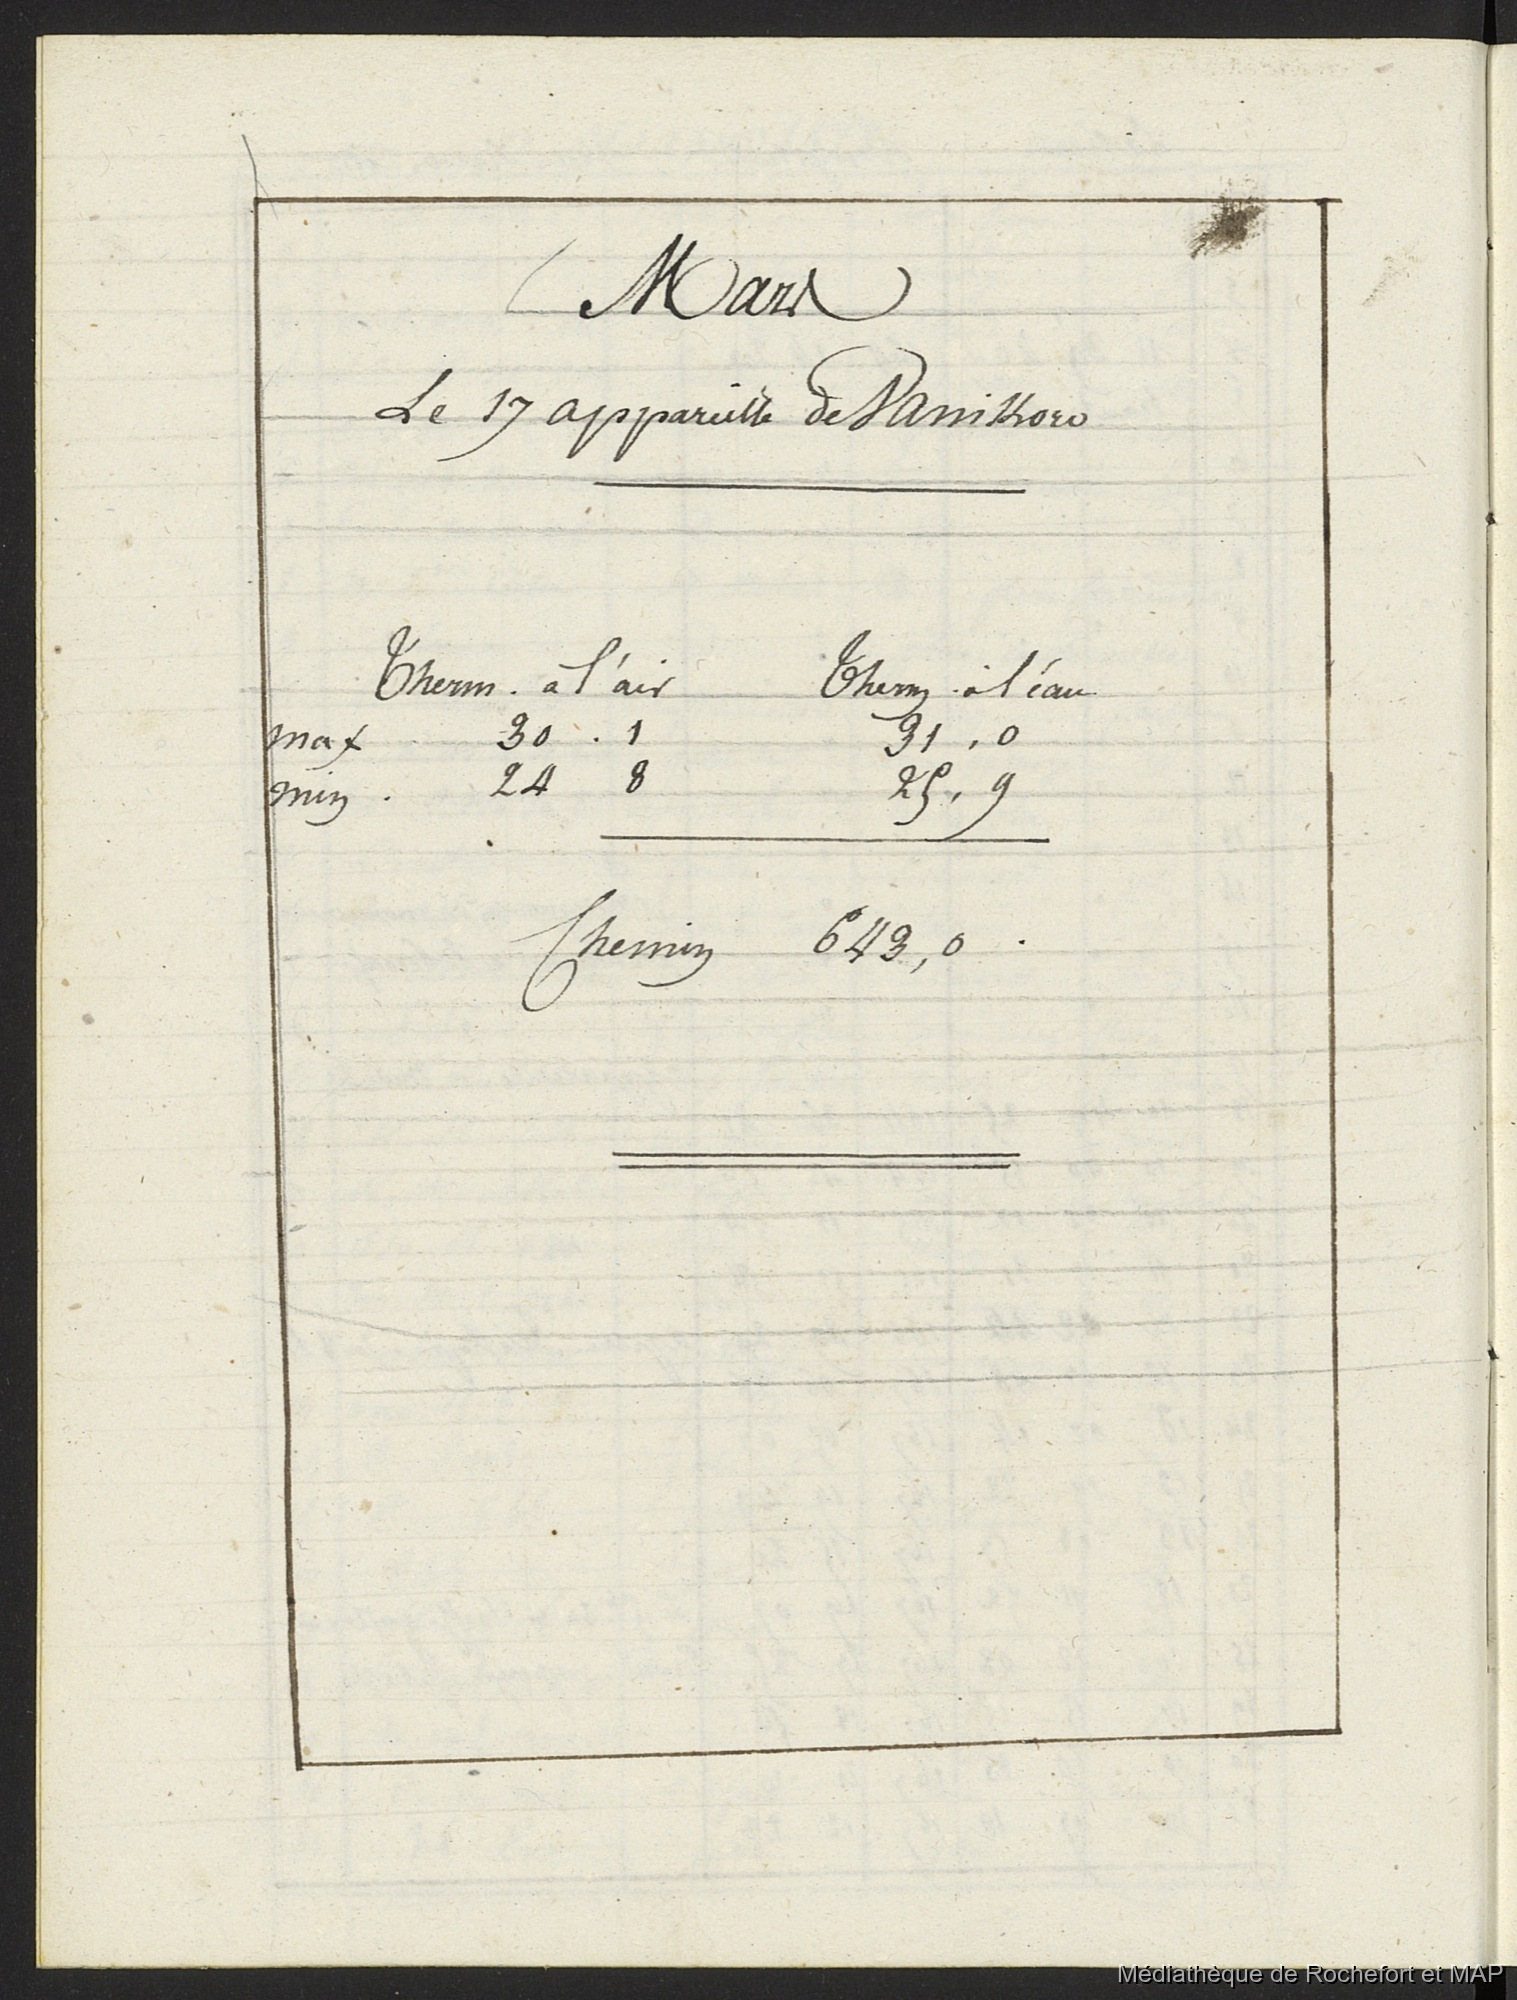 Mars
Le 17 appareille de Vanikoro
Therm. à l'air Therm à l'éau
max 30 . 1 31 , 0
min . 24 8 25 , 9
Chemin 643,0 .
Médiathèque de Rochefort et MAP